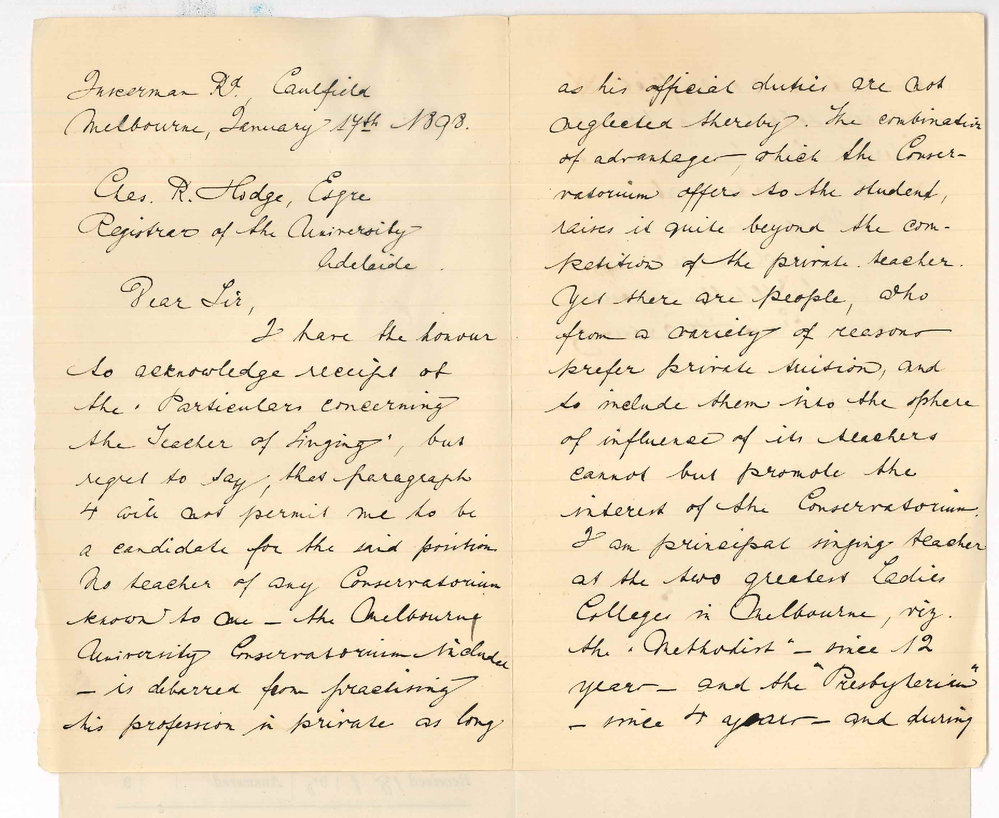 Inkerman Rd., Caulfield
Melbourne, January 17th 1898.
Chas. R. Hodge, Esqre
Registrar of the University
Adelaide.
Dear Sir,
I have the honour
to acknowledge receipt of
the "Particulars concerning
the Teacher of Singing", but
regret to say, that paragraph
4 will not permit me to be
a candidate for the said position.
No teacher of any Conservatorium
known to me – the Melbourne
University Conservatorium included
– is debarred from practising
his profession in private as long
as his official duties are not
neglected thereby. The combination
of advantages, which the Conser-
vatorium offers to the student,
raises it quite beyond the com-
petition of the private teacher.
Yet there are people, who
from a variety of reasons
prefer private tuition, and
to include them into the sphere
of influence of its teachers
cannot but promote the
interest of the Conservatorium.
I am principal singing teacher
at the two greatest Ladies
Colleges in Melbourne, viz.
the "Methodist" – since 12
years – and the "Presbyterian"
– since 4 years – and during